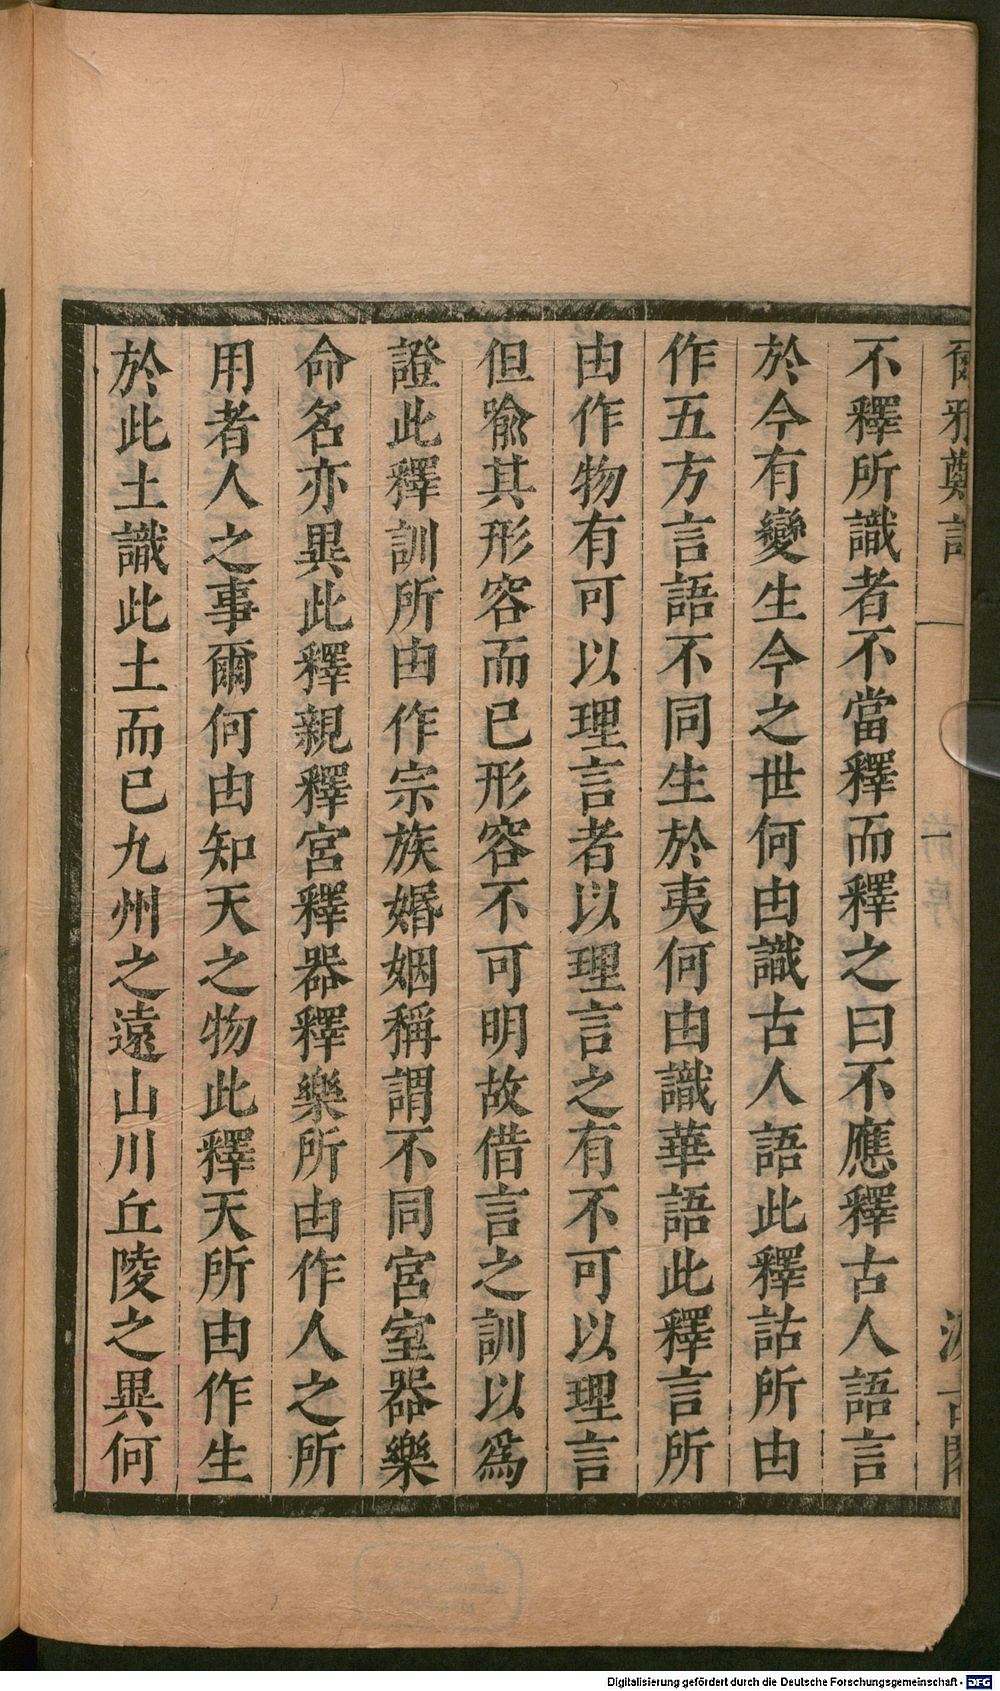 爾雅鄭註 一 汲古閣
不釋所識者不當釋而釋之曰不應釋古人語言
於今有變生今之世何由識古人語此釋詁所由
作五方言語不同生於夷何由識華語此釋言所
由作物有可以理言者以理言之有不可以理言
但喩其形容而已形容不可明故借言之訓以爲
證此釋訓所由作宗族婚姻稱謂不同宮室器樂
命名亦異此釋親釋宮釋器釋樂所由作人之所
用者人之事爾何由知天之物此釋天所由作生
於此土識此土而已九州之遠山川丘陵之異何
Digitalisierung gefördert durch die Deutsche Forschungsgemeinschaft - DFG